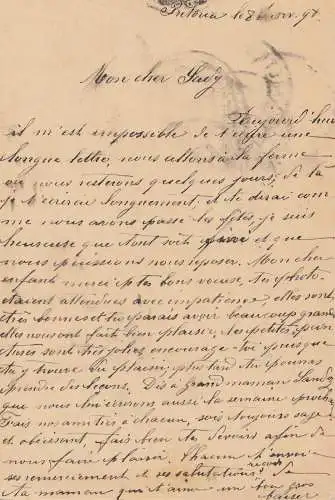 Pretoria le 8 Nov. 97
Mon cher Sady
Aujourd'hui
il m'est impossible de t'écrire une
longue lettre, nous allons à la ferme
où nous resterons quelques jours, de là
je t'écrirai longuement, et te dirai com
me nous avons passé les fêtes, je suis
heureuse que tout soit fini et que
nous puissions nous reposer. Mon cher
enfant merci p. tes bons voeux, tes photo
étaient attendues avec impatience, elles sont
très bonnes et tu parais avoir beaucoup grandi
elles nous ont fait bien plaisir, tes petites pein
tures sont très jolies, encourage-toi puisque
tu y trouve du plaisir, plus tard tu pourras
prendre des leçons. Dis à grand maman
que nous lui écrirons aussi la semaine proche
Fais nos amitiés à chacun, sois toujours sage
et obéissant, fais bien tes devoirs afin de
nous faire plaisir. Chacun t'envoie
ses remerciements et ses salutations reçois
ta maman qui t'aime une bon gros
baiser